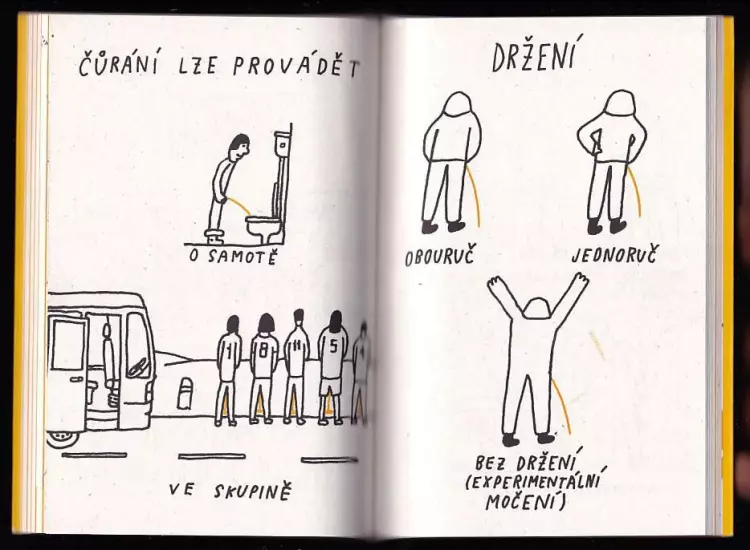 ČŮRÁNÍ LZE PROVÁDĚT
O SAMOTĚ
1 8 11 5
VE SKUPINĚ
DRŽENÍ
OBOURUČ
JEDNORUČ
BEZ DRŽENÍ
(EXPERIMENTÁLNÍ
MOČENÍ)